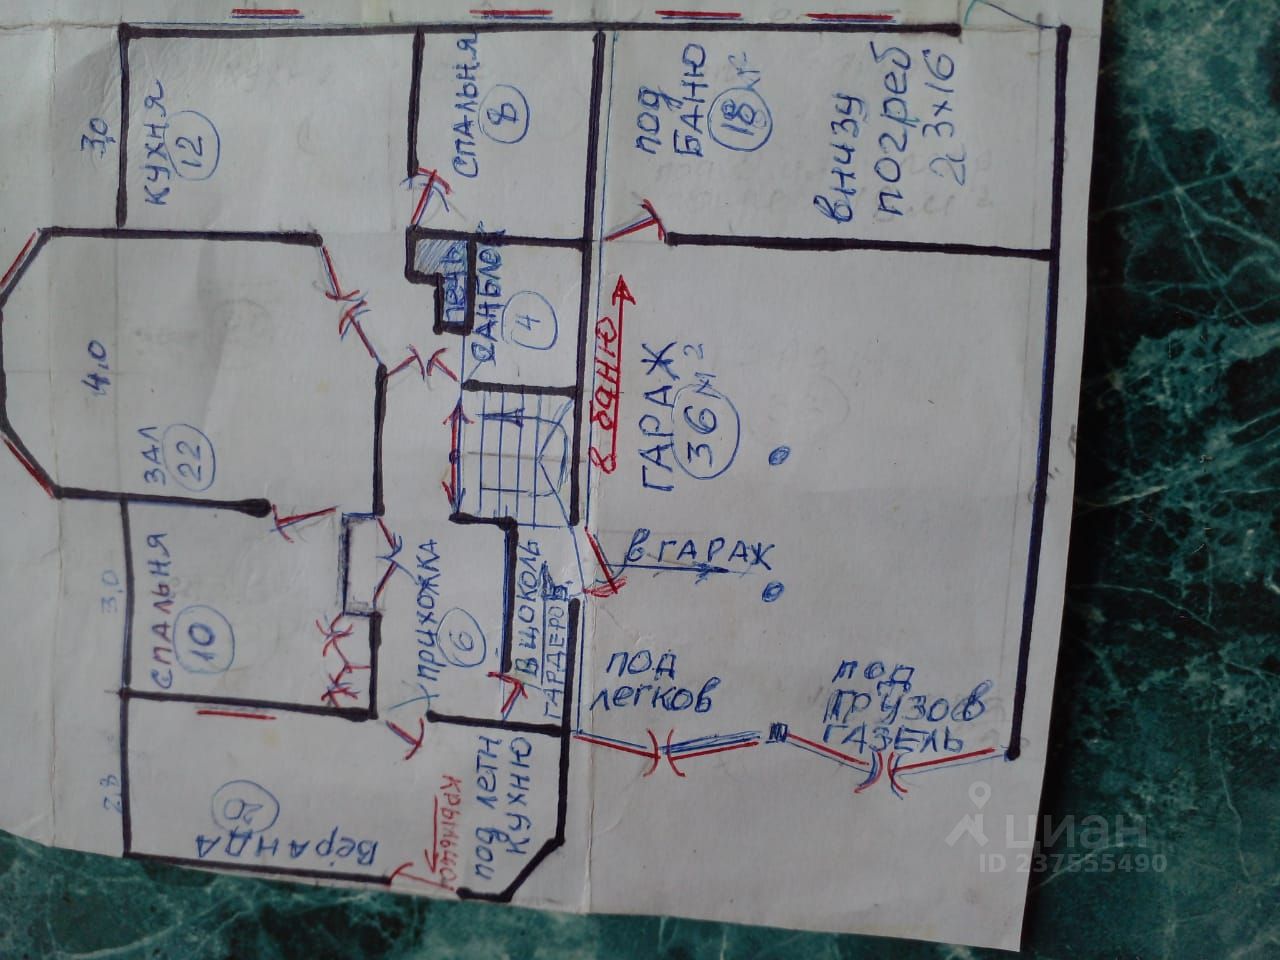 3,0
КУХНЯ
12
СПАЛЬНЯ
8
ПОД
БАНЮ
18
ВНИЗУ
ПОГРЕБ
2х3х16
4,0
ЗАЛ
22
ПЕЧЬ
САНБЛОК
4
В БАНЮ
ГАРАЖ
36 м2
3,0
СПАЛЬНЯ
10
ПРИХОЖКА
6
В ЦОКОЛЬ
ГАРДЕРОБ
В ГАРАЖ
ПОД
ЛЕГКОВ
ПОД
ГРУЗОВ
ГАЗЕЛЬ
2,8
9
ВЕРАНДА
КРЫЛЬЦО
ПОД ЛЕТН
КУХНЮ
циан
ID 237555490